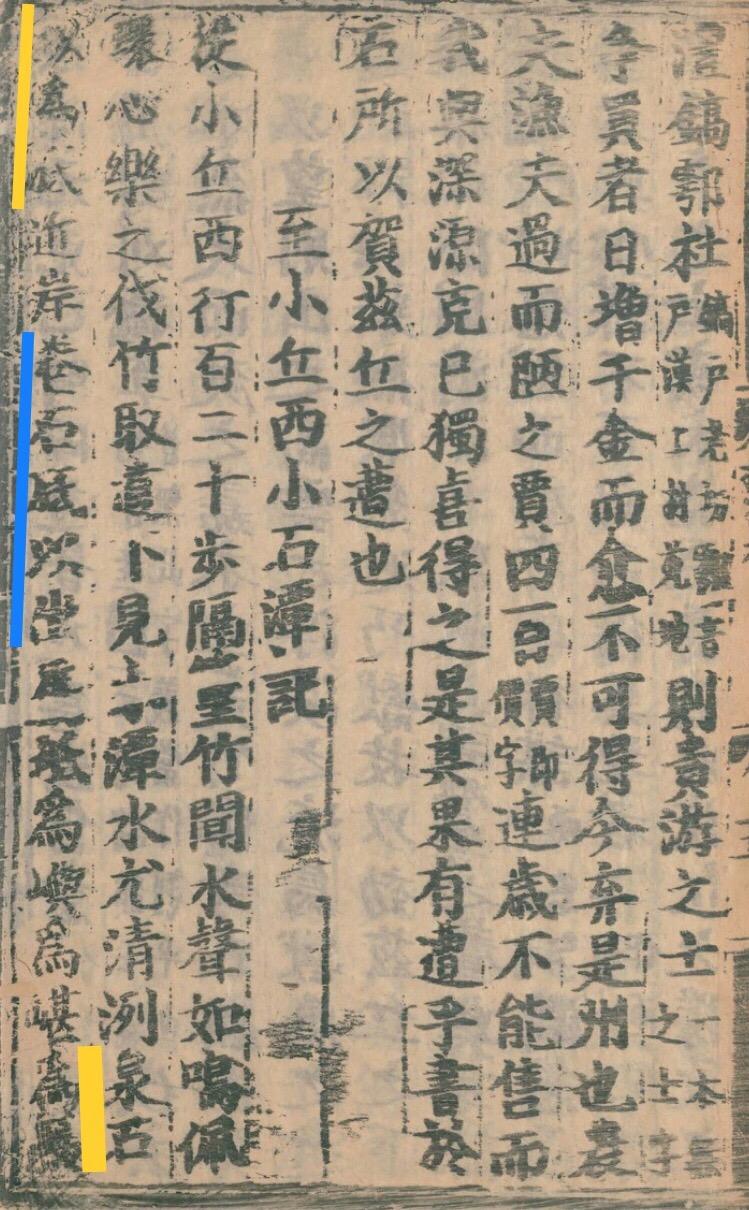 灃鎬鄠杜鎬戶老切鄠音戶漢上林苑地則貴游之士一本無之士字
爭買者日增千金而愈不可得今弃是州也農
夫漁夫過而陋之賈四百賈即價字連歲不能售而
我與深源克己獨喜得之是其果有遭乎書於
石所以賀茲丘之遭也
至小丘西小石潭記
從小丘西行百二十步隔篁竹聞水聲如鳴佩
環心樂之伐竹取道下見小潭水尤清洌泉石
以爲底近岸卷石底以出爲坻爲嶼爲嵁爲巖